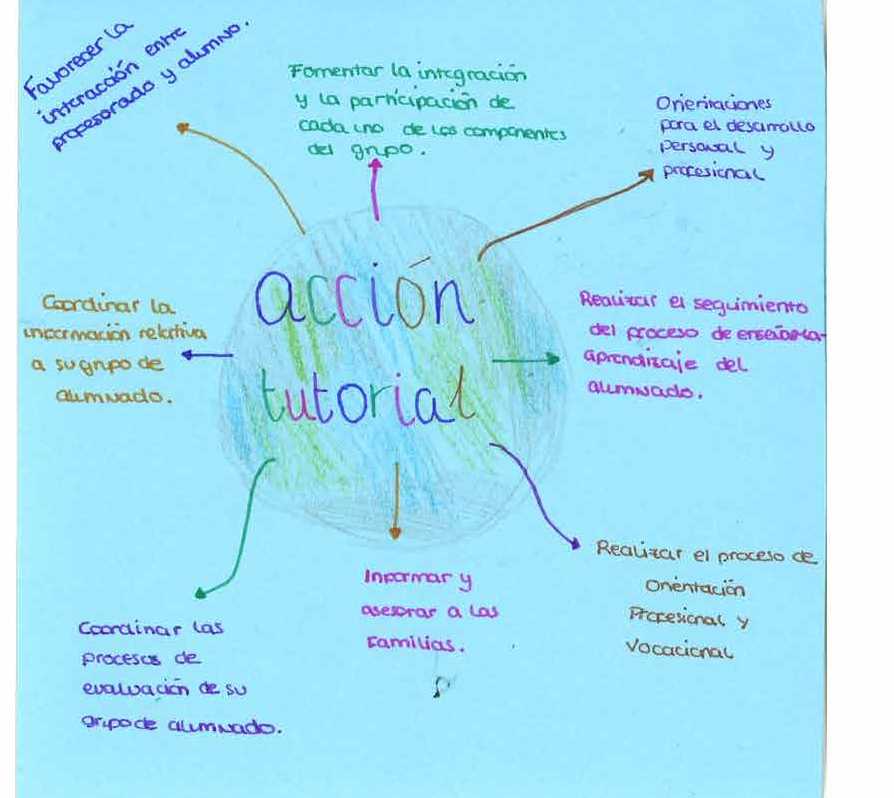 Favorecer la
interacción entre
profesorado y alumno.
Fomentar la integración
y la participación de
cada uno de los componentes
del grupo.
Orientaciones
para el desarrollo
personal y
profesional
acción
tutorial
Coordinar la
información relativa
a su grupo de
alumnado.
Realizar el seguimiento
del proceso de enseñanza-
aprendizaje del
alumnado.
Coordinar las
procesos de
evaluación de su
grupo de alumnado.
Informar y
asesorar a las
familias.
Realizar el proceso de
Orientación
Profesional y
Vocacional